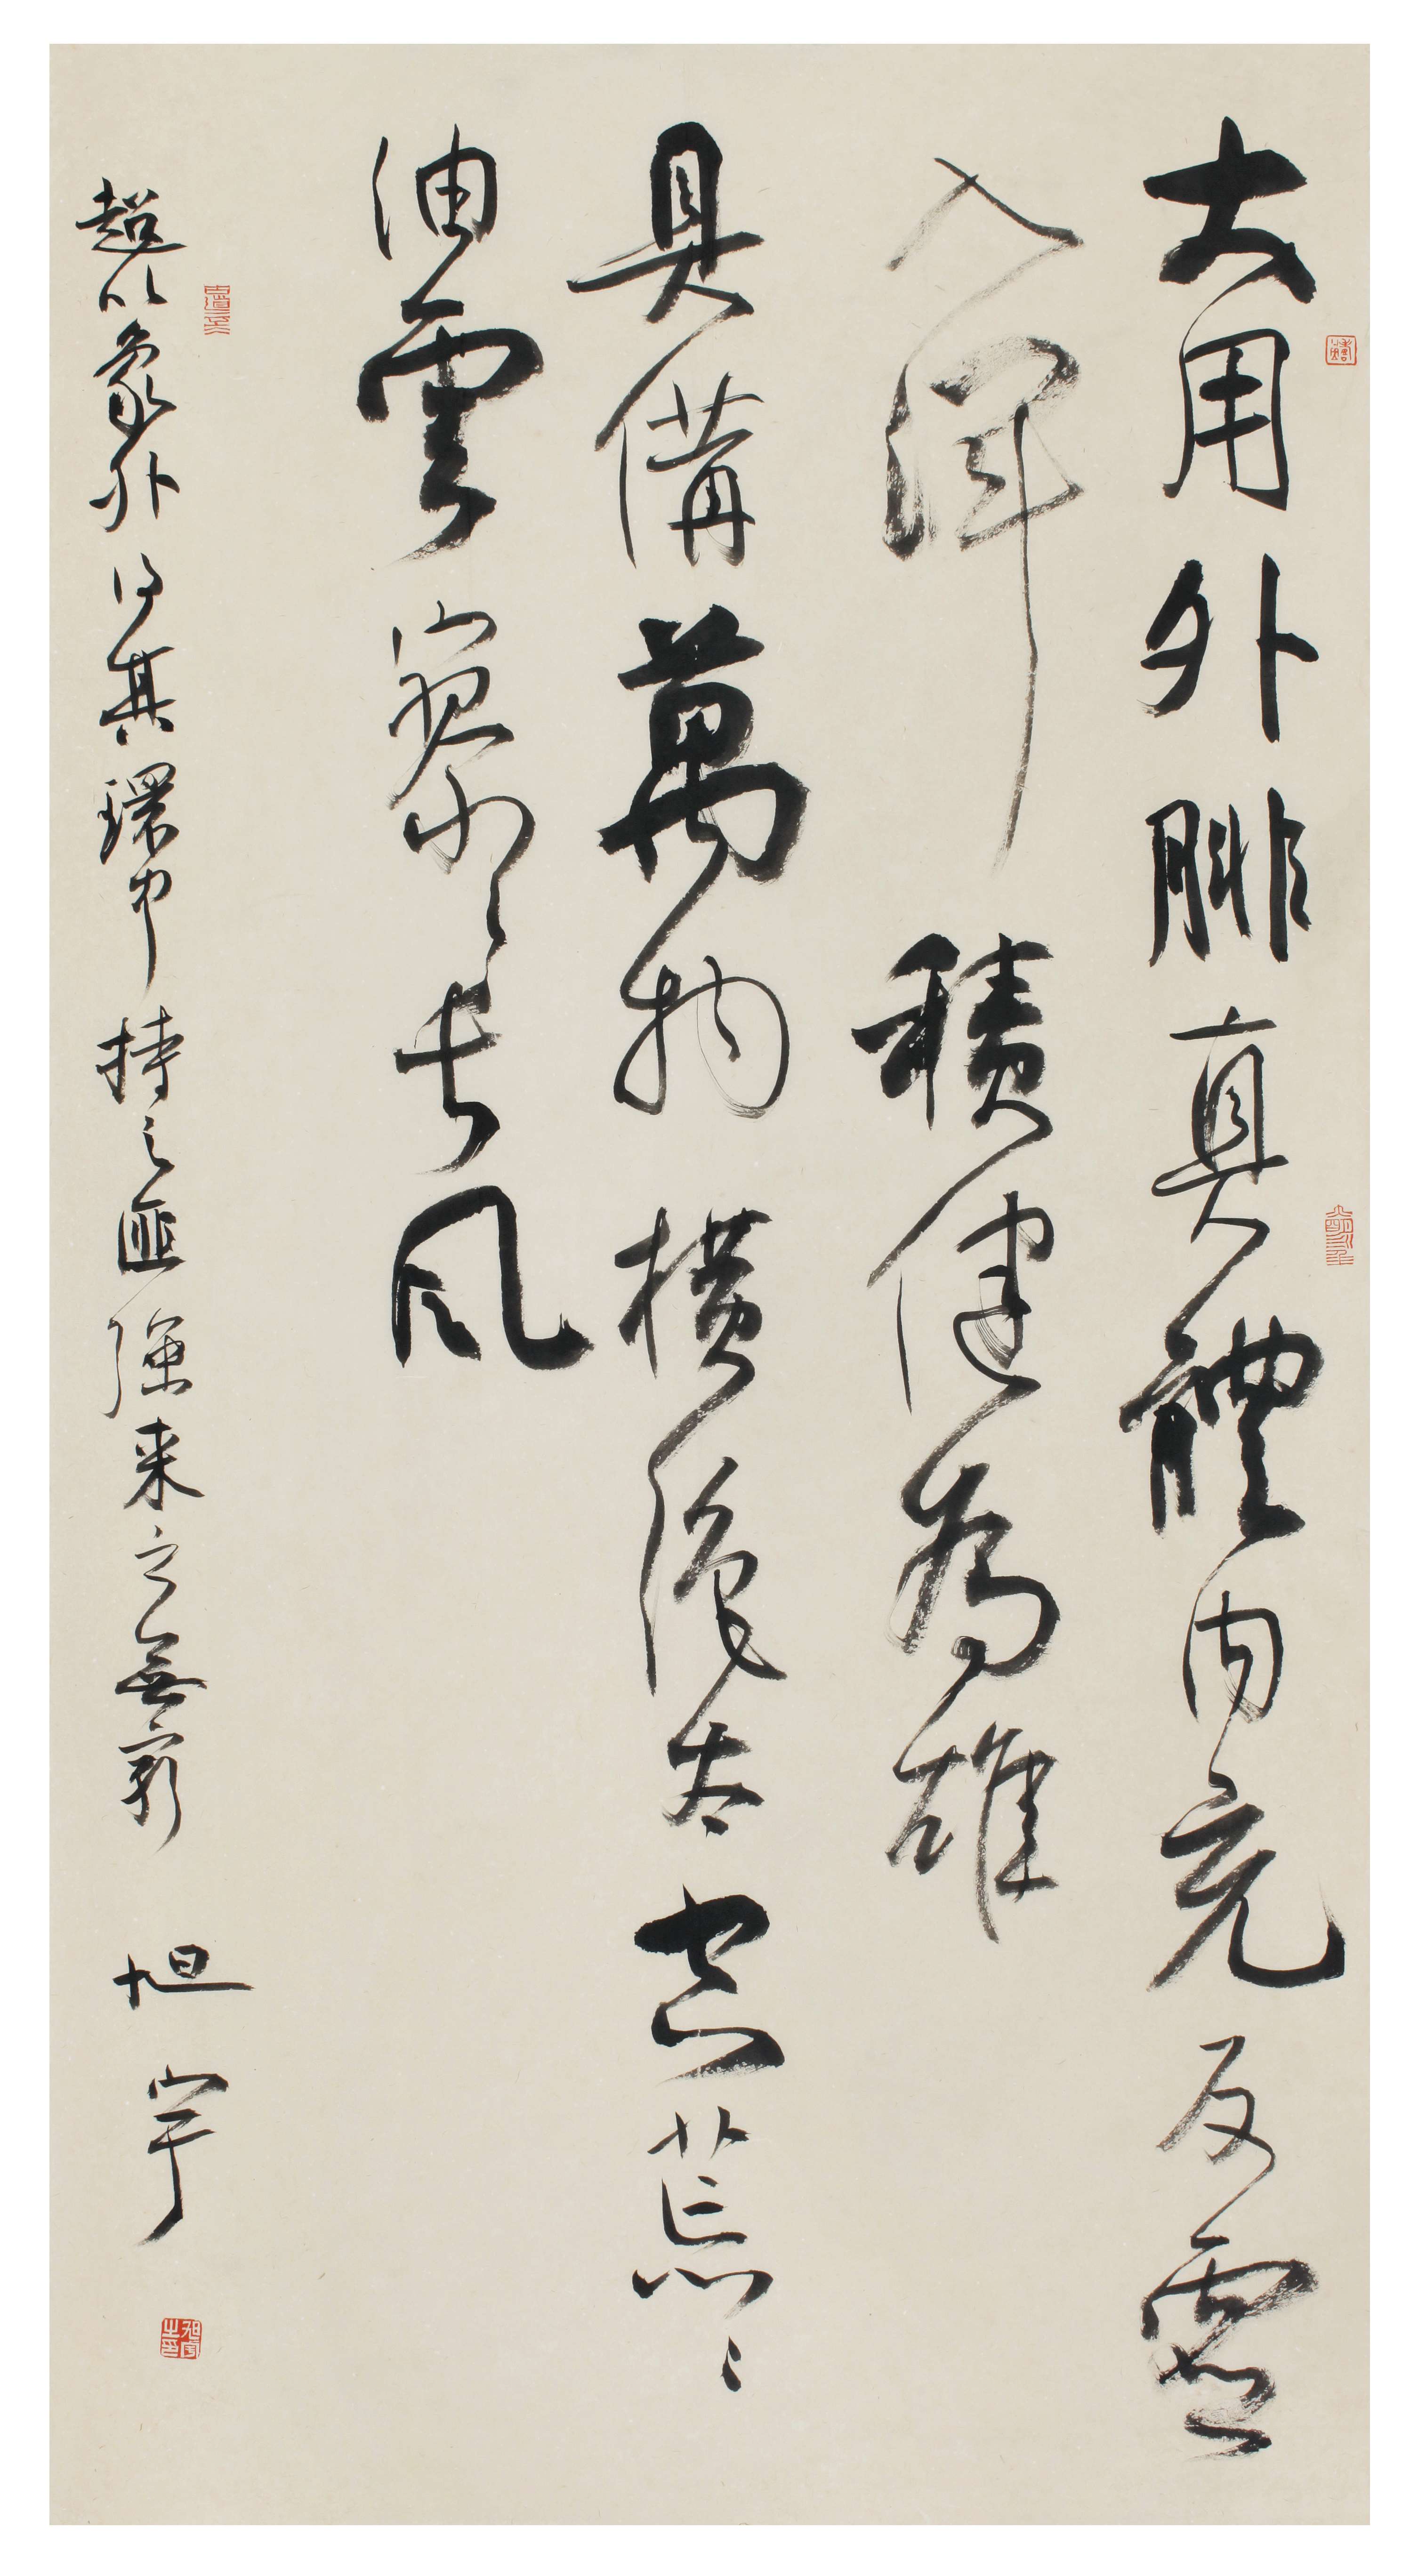 大用外腓真體内充反虛
入渾積健為雄
具備萬物橫絕太空荒〻
油雲寥〻長風
超以象外得其環中持之匪強来之無窮 旭宇
旭宇之印